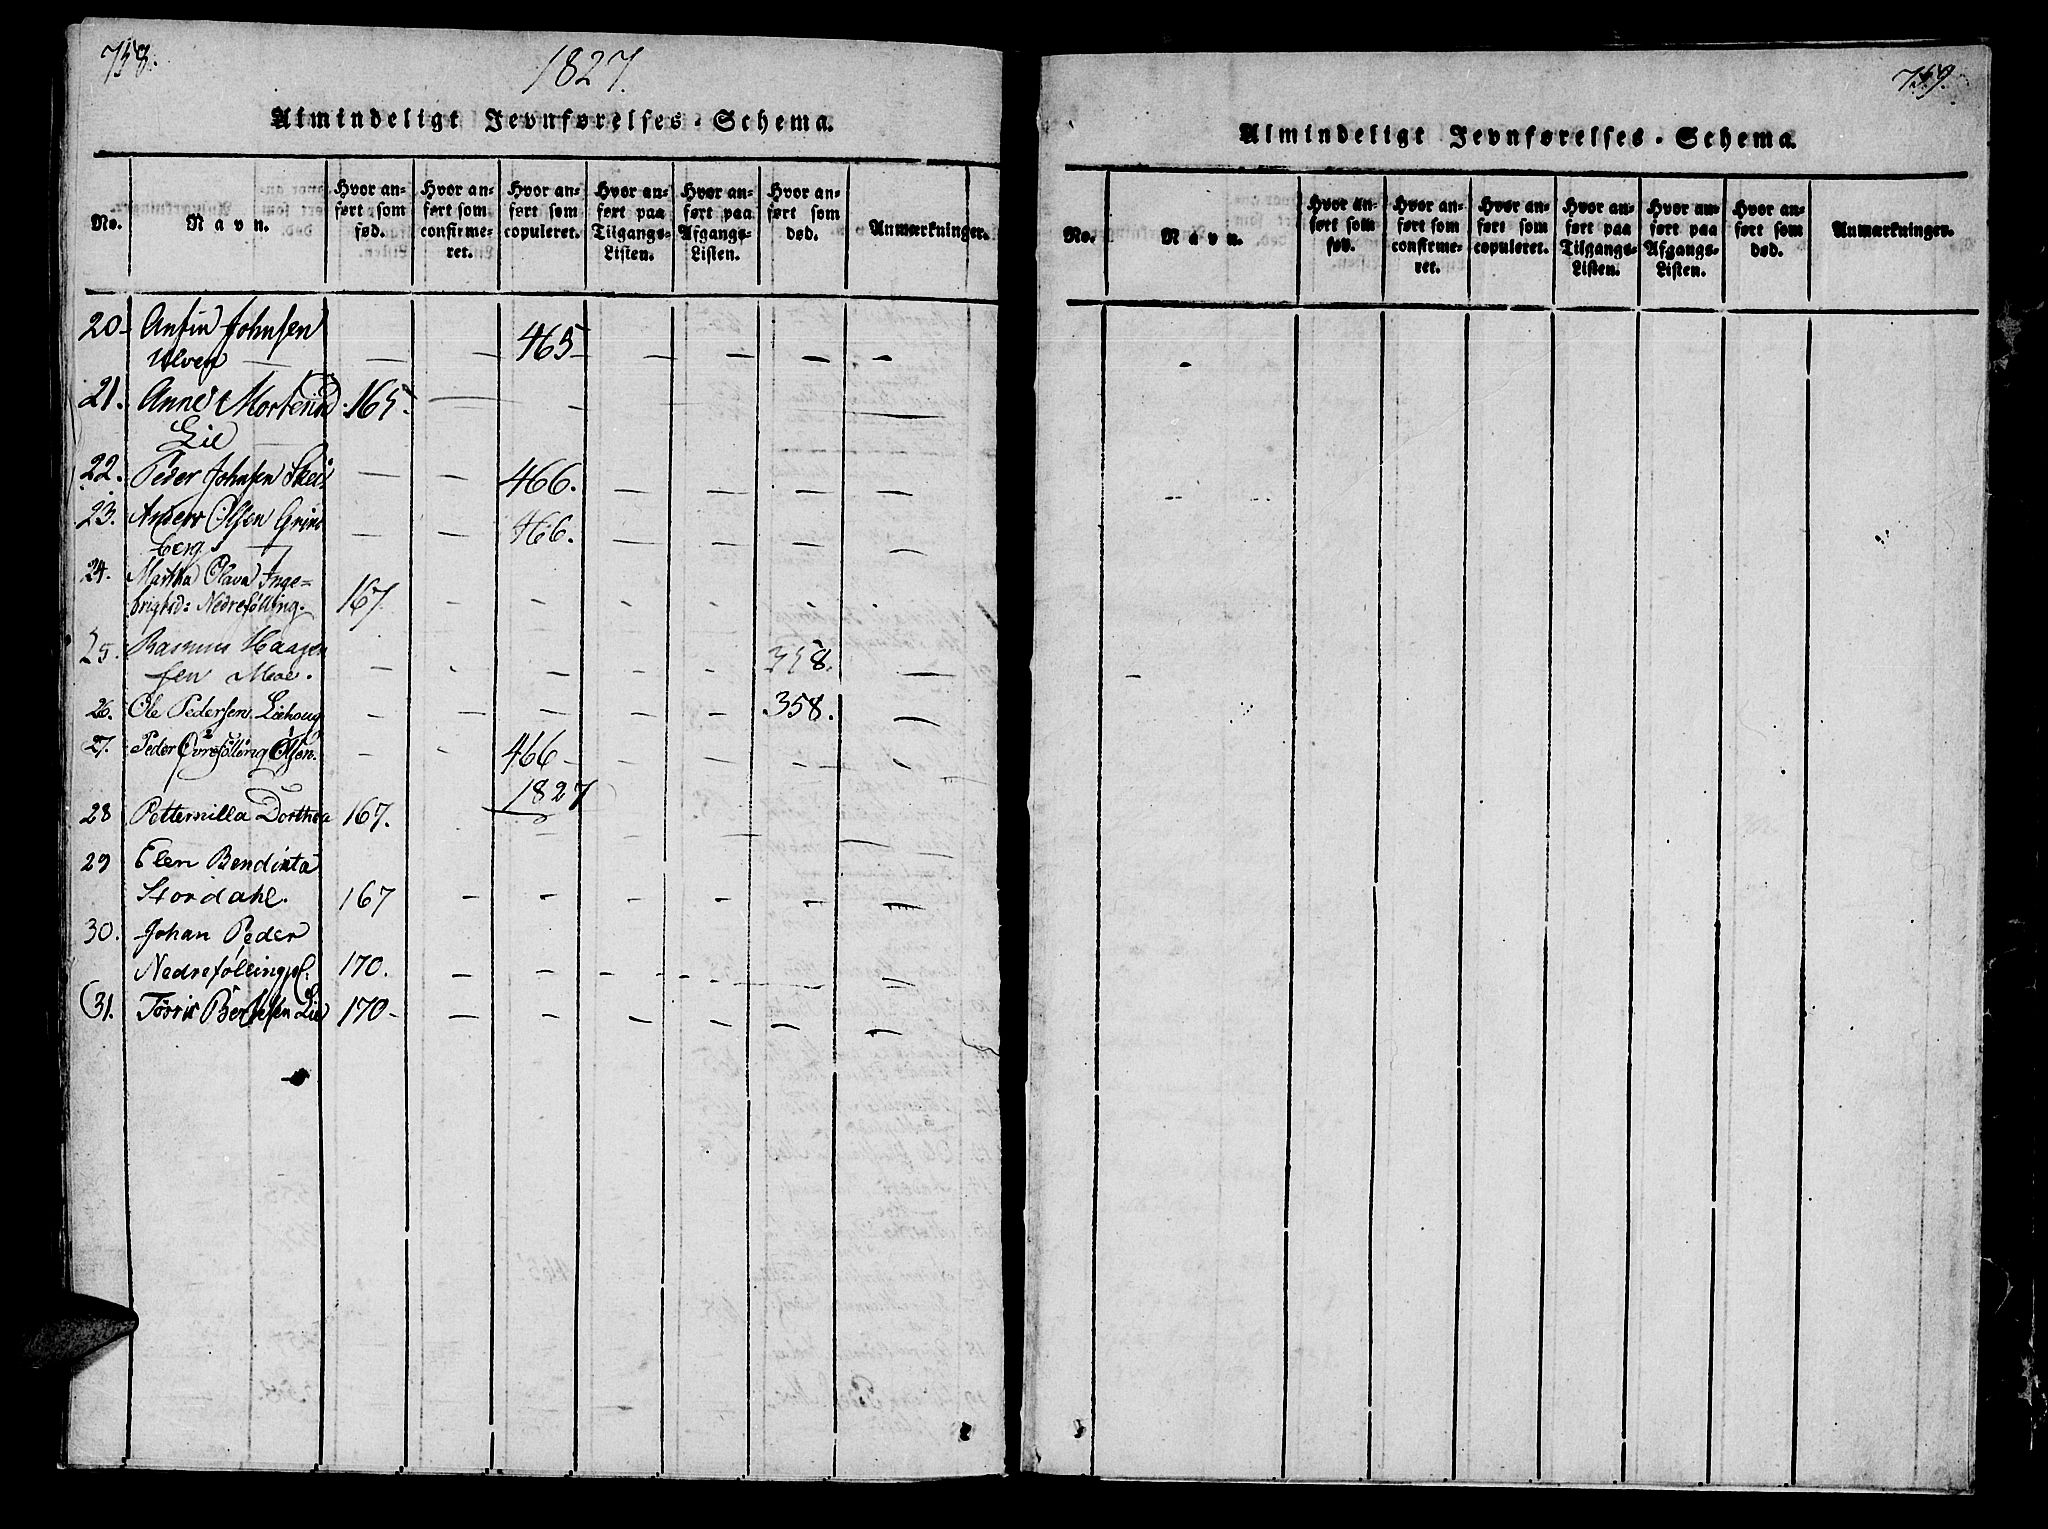 758.
1827.
Almindeligt Jevnførelses-Schema.
No.
Navn.
Hvor an-
ført som
fød.
Hvor an-
ført som
confirme-
ret.
Hvor an-
ført som
copuleret.
Hvor an-
ført paa
Tilgangs-
Listen.
Hvor an-
ført paa
Afgangs-
Listen.
Hvor an-
ført som
død.
Anmærkninger.
20- Anfin Johnsen
Ulven — — — 465- — — — —
21. Anne Mortensd. 165. — — — — —
Lie
22. Peder Johnsen — — 466. — — — —
23. Anders Olsen Grind
berg — — — 466. — — — —
24. Martha Olava Inge=
brigtsd: Nedrefølling. 167. — — — — — —
25. Rasmus Haagen
sen Moe. — — — — — 358. —
26. Ole Pedersen Liehoug — — — — — 358. —
27. Peder Øvrefølling Olsen. — — 466 — — — —
1827
28 Petternilla Dorthea 167. — — — — — —
29 Elen Bendicta
Stordahl. 167 — — — — — —
30. Johan Peder
Nedrefølling pl: 170. — — — — — —
31. Tørris Berthsen Lie 170- — — — — — —
759.
Almindeligt Jevnførelses-Schema.
No.
Navn.
Hvor an-
ført som
fød.
Hvor an-
ført som
confirme-
ret.
Hvor an-
ført som
copuleret.
Hvor an-
ført paa
Tilgangs-
Listen.
Hvor an-
ført paa
Afgangs-
Listen.
Hvor an-
ført som
død.
Anmærkninger.